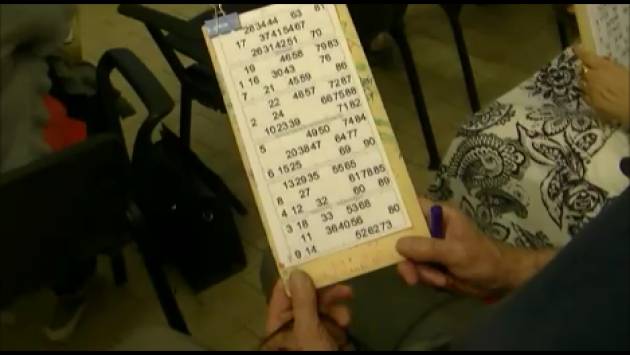 283444 63 81
17 37415467
26314251 70
19 4658 7983
1 16 3043 76
7 21 4559 86
22 4857 7287
2 24 667588
102339 7182
5 4950 7484
203847 6477
6 1525 69 90
132935 5565
8 27 617885
4 12 32 60 89
3 18 33 5368
11 364056 80
9 14 526273